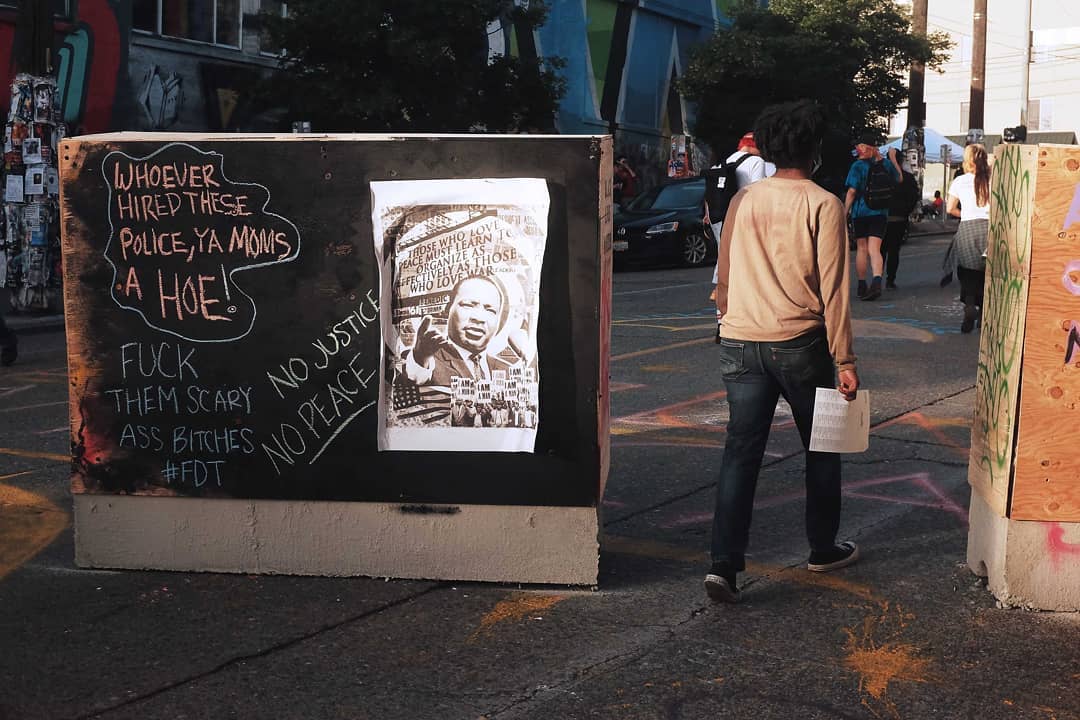 WHOEVER
HIRED THESE
POLICE, YA MOMS
A HOE!
FUCK
THEM SCARY
ASS BITCHES
#FDT
NO JUSTICE
NO PEACE
THOSE WHO LOVE
PEACE MUST LEARN TO
ORGANIZE AS
EFFECTIVELY AS THOSE
WHO LOVE WAR